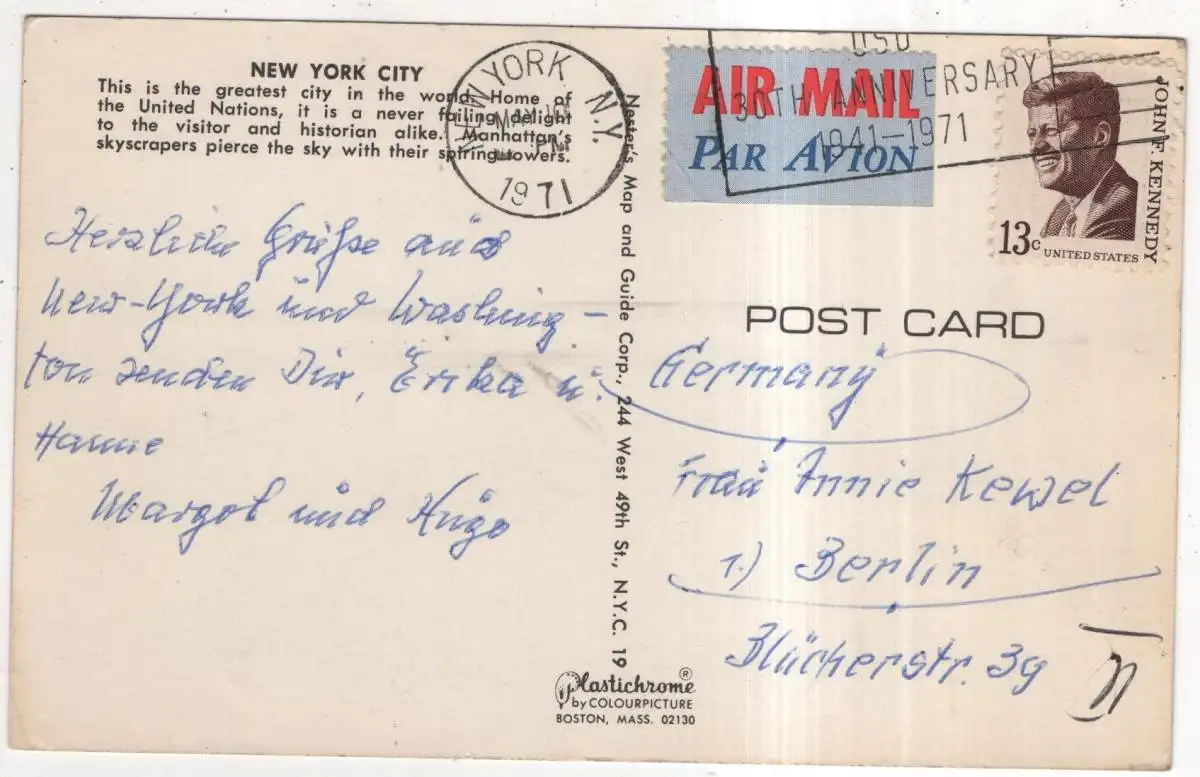 NEW YORK CITY
This is the greatest city in the world. Home of
the United Nations, it is a never failing delight
to the visitor and historian alike. Manhattan's
skyscrapers pierce the sky with their spiring towers.
NEW YORK N.Y.
PM
1971
Herzliche Grüße aus
New-York und Washing-
ton senden Dir, Erika u.
Hanne
Margot und Hugo
Nester's Map and Guide Corp., 244 West 49th St., N.Y.C. 19
Plastichrome®
by COLOURPICTURE
BOSTON, MASS. 02130
AIR MAIL
PAR AVION
USO
30TH ANNIVERSARY
1941-1971
JOHN F. KENNEDY
13c
UNITED STATES
POST CARD
Germany
Frau Annie Kewel
1.) Berlin
Blücherstr. 39